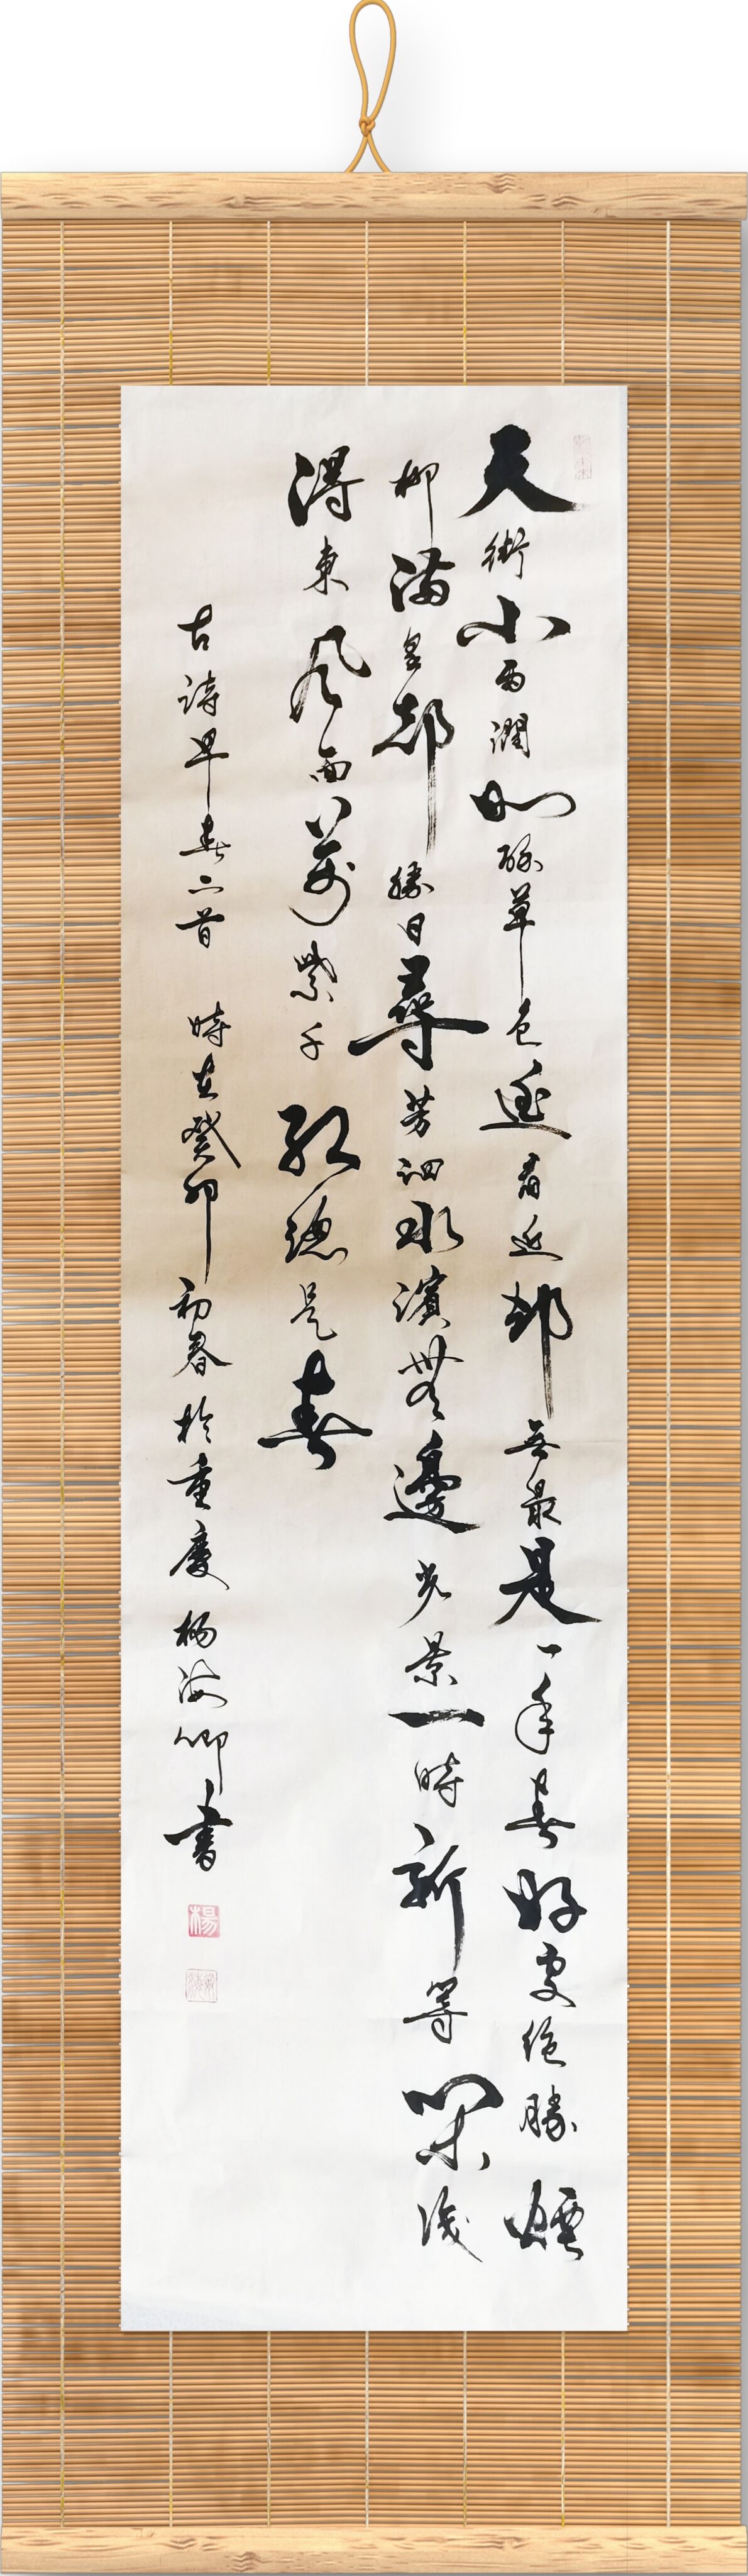 天街小雨潤如酥草色遥看近却無最是一年春好處絕勝煙
柳滿皇都勝日尋芳泗水濱無邊光景一時新等閑識
得東風面萬紫千紅總是春
古詩早春二首 時在癸卯初春於重慶 楊海卿書
楊